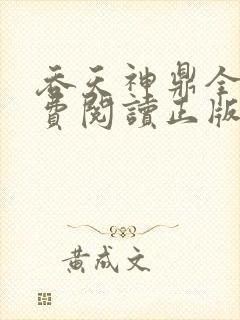 吞天神鼎全
費閱讀正版
黃成文